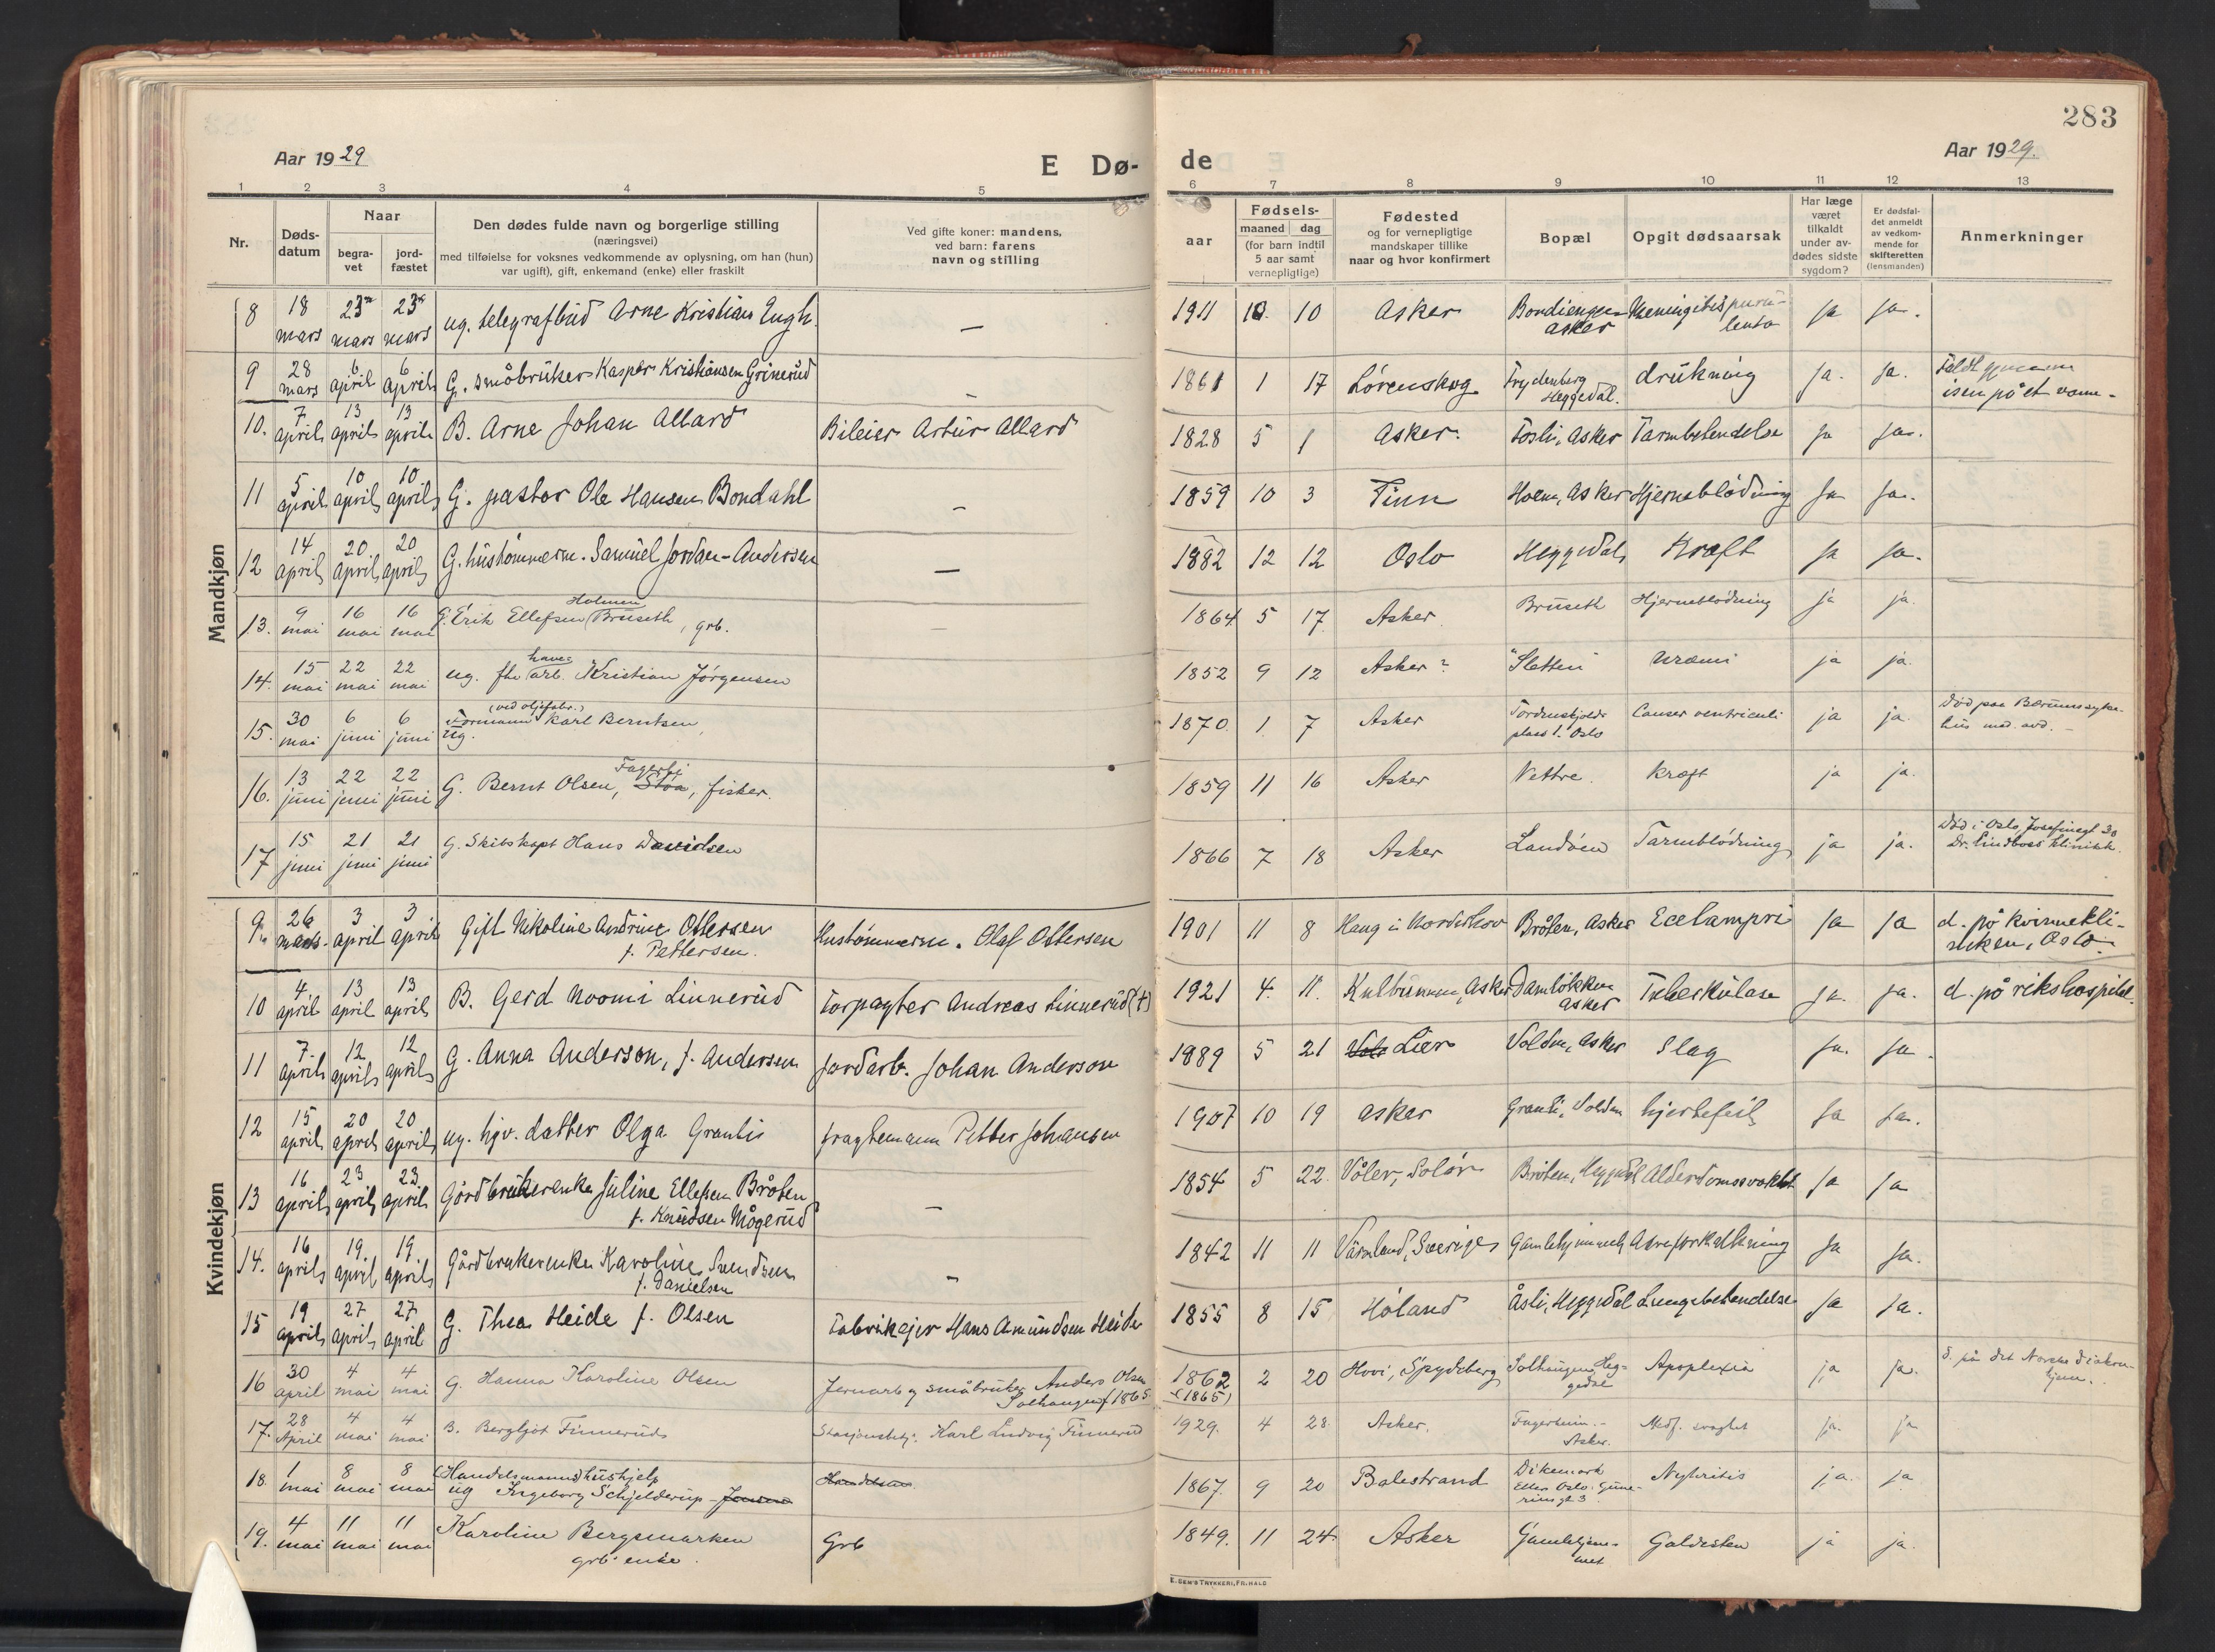 283
Aar 1929
E Dø-
de
Aar 1929.
1 2 3 4 5 6 7 8 9 10 11 12 13
Nr.
Døds-
datum
Naar
begra-
vet
jord-
fæstet
Den dødes fulde navn og borgerlige stilling
(næringsvei)
med tilføielse for voksnes vedkommende av oplysning, om han (hun)
var ugift), gift, enkemand (enke) eller fraskilt
Ved gifte koner: mandens,
ved barn: farens
navn og stilling
aar
Fødsels-
maaned dag
(for barn indtil
5 aar samt
vernepligtige)
Fødested
og for vernepligtige
mandskaper tillike
naar og hvor konfirmert
Bopæl
Opgit dødsaarsak
Har læge
været
tilkaldt
under av-
dødes sidste
sygdom?
Er dødsfal-
det anmeldt
av vedkom-
mende for
skifteretten
(lensmanden)
Anmerkninger
Mandkjøn
8 18 mars 23 mars 23 mars ug. telegrafbud Arne Kristian Engh. — 1911 10 Asker Bondiengen Asker Meningitis purulenta ja ja.
9 28 mars 6 april 6 april G. småbruker Kasper Kristiansen Grinerud — 1861 1 17 Lørenskog Frydenberg Heggedal. drukning ja. ja. Faldt gjennem isen på et vann.
10. 7 april 13 april 13 april B. Arne Johan Allard Bileier Artur Allard 1828 5 1 Asker. Fosli, Asker Tarmbetendelse ja ja.
11 5 april 10 april 10 april G. pastor Ole Hansen Bondahl — 1859 10 3 Tinn Holen, Asker Hjerneblødning ja ja.
12 14 april 20 april 20 april G. hustømmerm. Samuel Jordan-Andersen — 1882 12 12 Oslo Heggedal Kræft ja ja.
13. 9 mai 16 mai 16 mai G. Erik Ellefsen Holmen (Bruseth, grb. — 1864 5 17. Asker. Bruseth Hjerneblødning ja ja.
14. 15 mai 22 mai 22 mai ug. fhv. have-arb. Kristian Jørgensen 1852 9 12 Asker? "Sletten" Uræmi ja ja.
15. 30 mai 6 juni 6 juni Formann (ved oljefabr.) Karl Berntsen, ug. 1870 1. 7 Asker Tordenskjolds plass 1. Oslo Cancer ventriculi ja ja. Død paa Bærums sykehus med. avd. —
16. 13 juni 22 juni 22 juni G. Bernt Olsen, Fagerli Støa, fisker. 1859 11 16 Asker Vettre. Kræft ja ja.
17 15 juni 21 juni 21 juni G. Skibskapt Hans Davidsen 1866 7 18 Asker Landøen Tarmblødning ja ja. Død i Oslo, Josefinegt 30 Dr. Lindboes klinikk.
Kvindekjøn
9. 26 mars 3 april 3 april Gift Nikoline Andrine Ottersen f. Pettersen. Hustømmerm. Olaf Ottersen 1901 11 8 Haug i Norderhov Bråten, Asker Eclampsi ja ja d. på kvinneklinikken, Oslo.
10 4 april 13 april 13 april B. Gerd Noomi Linnerud Forpagter Andreas Linnerud (†) 1921 4. 11. Kulbrunnen, Asker Damløkken Asker Tuberkulose ja. ja. d. på rikshospitel.
11 7 april 12 april 12 april G. Anna Anderson, f. Andersen Jordarb. Johan Anderson 1889 5 21 Lier Volden, Asker Slag ja. ja.
12 15 april 20 april 20 april ug. hjv. datter Olga Granli Fragtemann Petter Johansen 1907 10 19 Asker Granli, Volden hjertefeil ja ja.
13 16 april 23 april 23 april Gårdbrukerenke Juline Ellefsen Bråten f. Knudsen Mågerud — 1854 5 22. Våler, Solør Bråten, Heggedal Alderdomssvakhet ja ja
14. 16 april 19. april 19 april Gårdbrukerenke Karoline Svendsen f. Danielsen — 1842 11 11 Värmland, Sverige Gamlehjemmet Åreforkalkning ja ja.
15 19 april 27 april 27 april G. Thea Heide f. Olsen Fabrikejer Hans Amundsen Heide 1855 8 15 Høland Åsli, Heggedal Lungebetendelse ja ja.
16 30 april 4 mai 4 mai G. Hanna Karoline Olsen Jernarb. og småbruker Anders Olsen Solhaugen f. 1865. 1862 (1865) 2 20 Hovi, Spydeberg Solhaugen Heggedal Apoplexia ja ja. d. på det Norske Diakonhjem.
17. 28 April 4 mai 4 mai B. Bergljot Finnerud Stasjonsbetj. Karl Ludvig Finnerud 1929. 4 28. Asker. Fagerheim. — Asker. Medf. svaghet ja. ja
18. 1 mai 8 mai 8 mai (Handelsmanns) hushjelp ug Ingeborg Schjelderup-Jensen Handelsm. 1867. 9 20 Balestrand Dikemark Eller Oslo: Nephritis ja. ja
19. 4 mai 11 mai 11 mai Karoline Bergsmarken grb. enke. Grb 1849. 11 24. Asker Gamlehjemmet Galdesten ja ja.
E. SEM'S TRYKKERI, FR.HALD